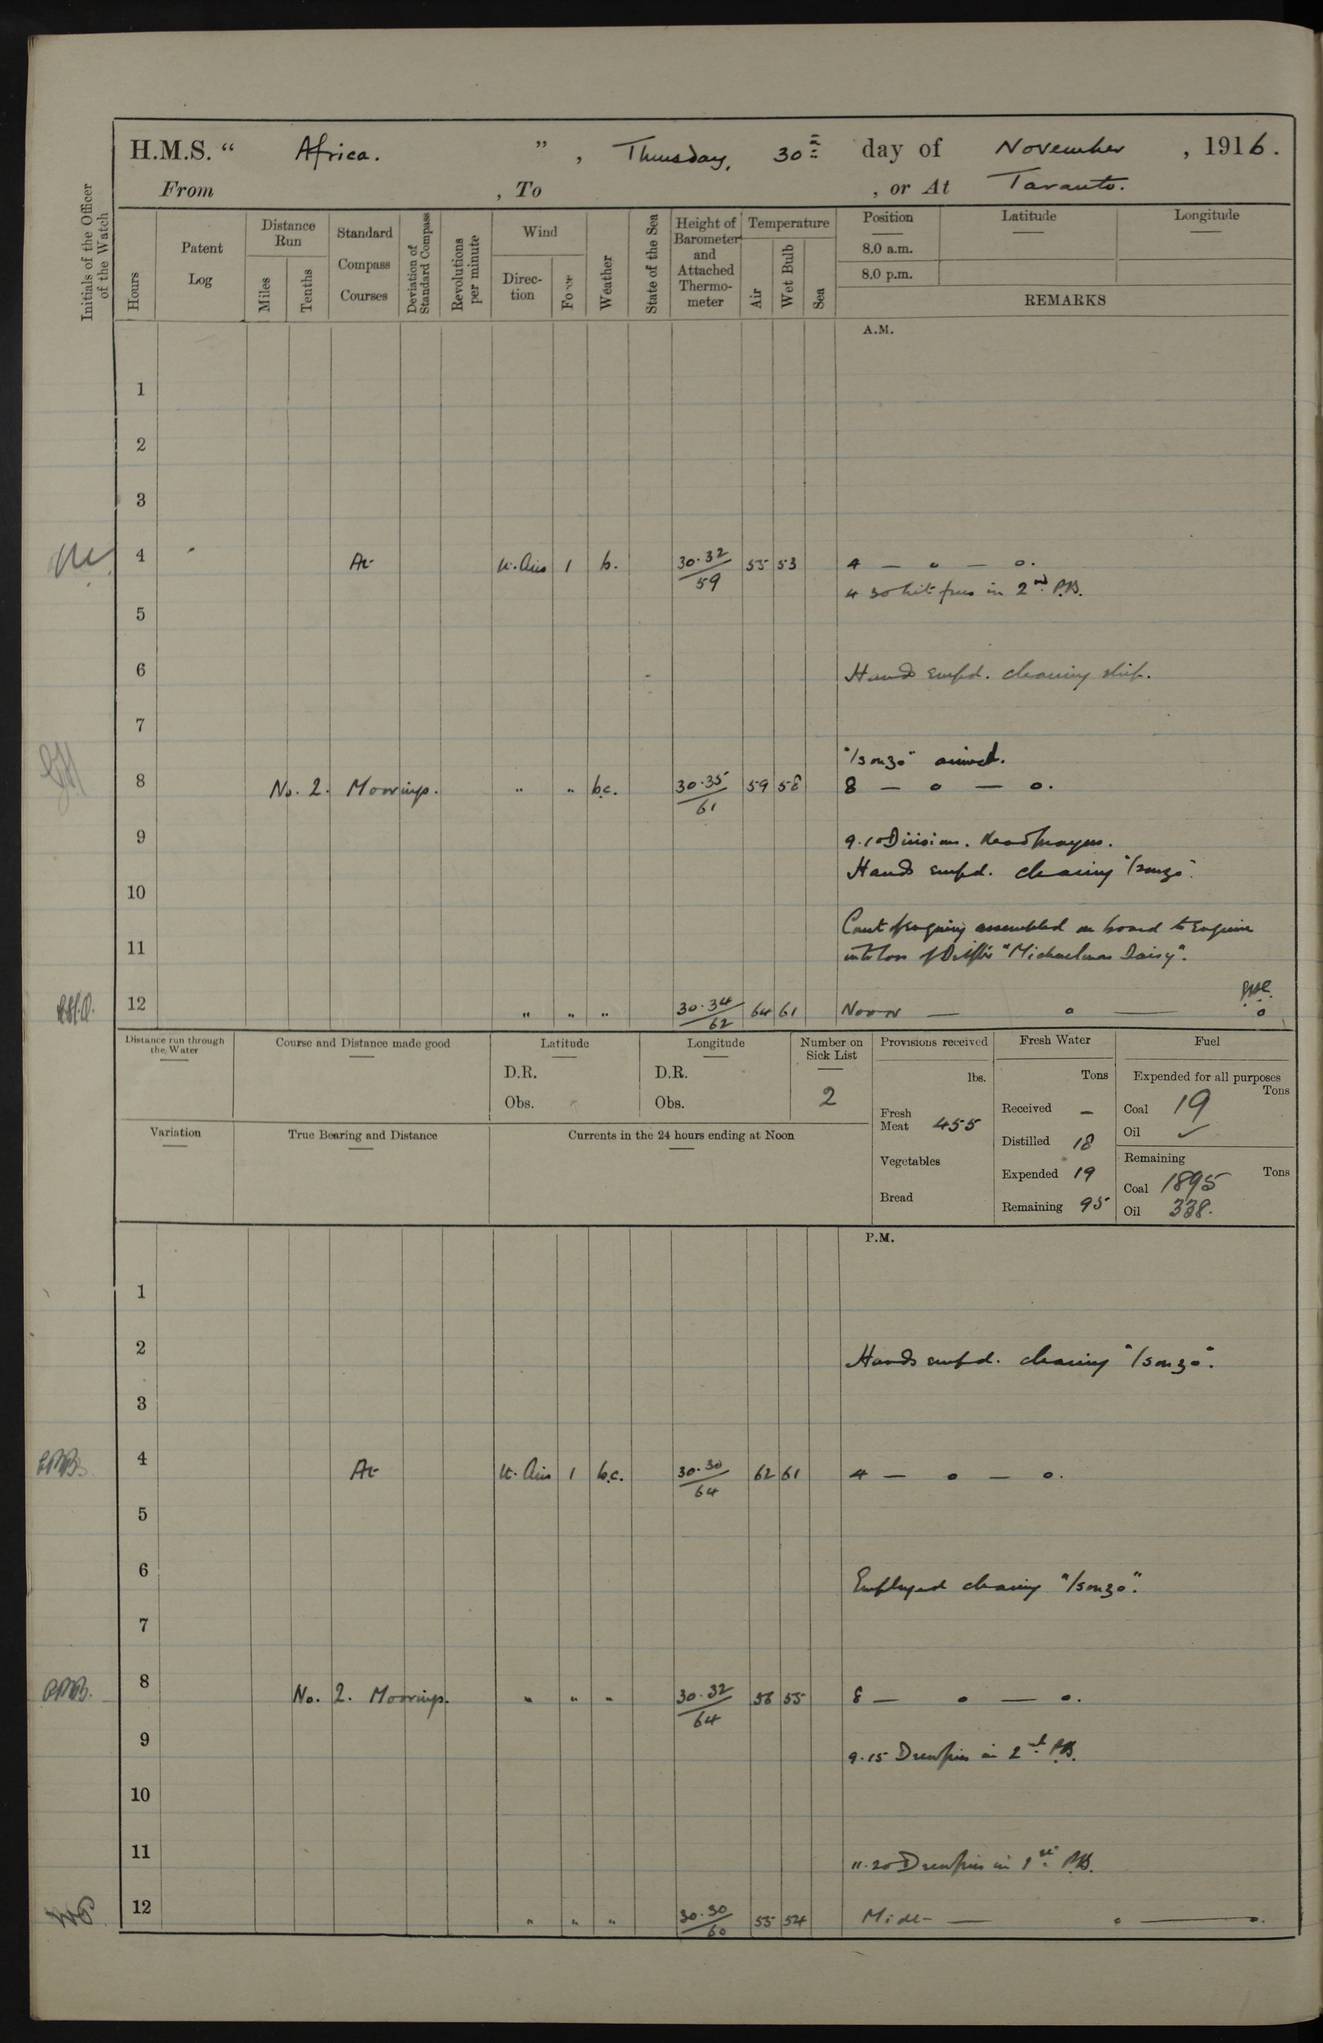 H.M.S. “ Africa. ” , Thursday, 30th day of November , 1916.
From , To , or At Taranto.
Initials of the Officer of the Watch
Hours
Patent Log
Distance Run
Miles
Tenths
Standard Compass Courses
Deviation of Standard Compass
Revolutions per minute
Wind
Direction
Force
Weather
State of the Sea
Height of Barometer and Attached Thermometer
Temperature
Air
Wet Bulb
Sea
Position Latitude Longitude
8.0 a.m.
8.0 p.m.
REMARKS
A.M.
1
2
3
4 At lt. Airs 1 b. 30.32/59 55 53 4 — o — o.
4 30 Lit fires in 2nd P.B.
5
6 Hands empd. cleaning ship.
7
"Isonzo" arrived.
8 No. 2. Moorings. " " b.c. 30.35/61 59 58 8 — o — o.
9 9.10 Divisions. Read Prayers.
Hands empd. clearing "Isonzo".
10
Court of enquiry assembled on board to enquire
11 into loss of Drifter "Michaelmas Daisy".
12 " " " 30.34/62 64 61 Noon — o — o
Distance run through the Water
Course and Distance made good
Latitude
D.R.
Obs.
Longitude
D.R.
Obs.
Number on Sick List
2
Provisions received
lbs.
Fresh Meat 455
Vegetables
Bread
Fresh Water
Tons
Received –
Distilled 18
Expended 19
Remaining 95
Fuel
Expended for all purposes
Tons
Coal 19
Oil ✓
Remaining
Tons
Coal 1895
Oil 338.
Variation
True Bearing and Distance
Currents in the 24 hours ending at Noon
P.M.
1
2 Hands empd. clearing "Isonzo".
3
4 At lt. Airs 1 b.c. 30.30/64 62 61 4 — o — o.
5
6 Employed clearing "Isonzo".
7
8 No. 2. Moorings. " " " 30.32/64 56 55 8 — o — o.
9 9.15 Drew fires in 2nd P.B.
10
11 11.20 Drew fires in 1st P.B.
12 " " " 30.30/60 55 54 Midt — o — o.